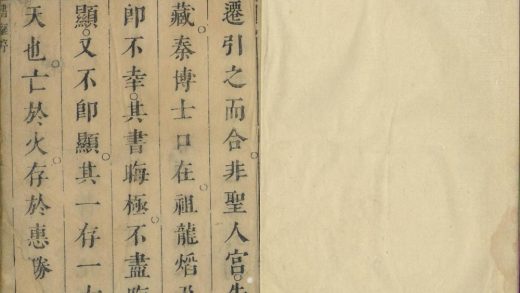 遷引之而合非聖人宫
藏秦博士口在祖龍熖
卽不幸其書晦極不盡
顯又不卽顯其一存一
天也亡於火存於惠隊